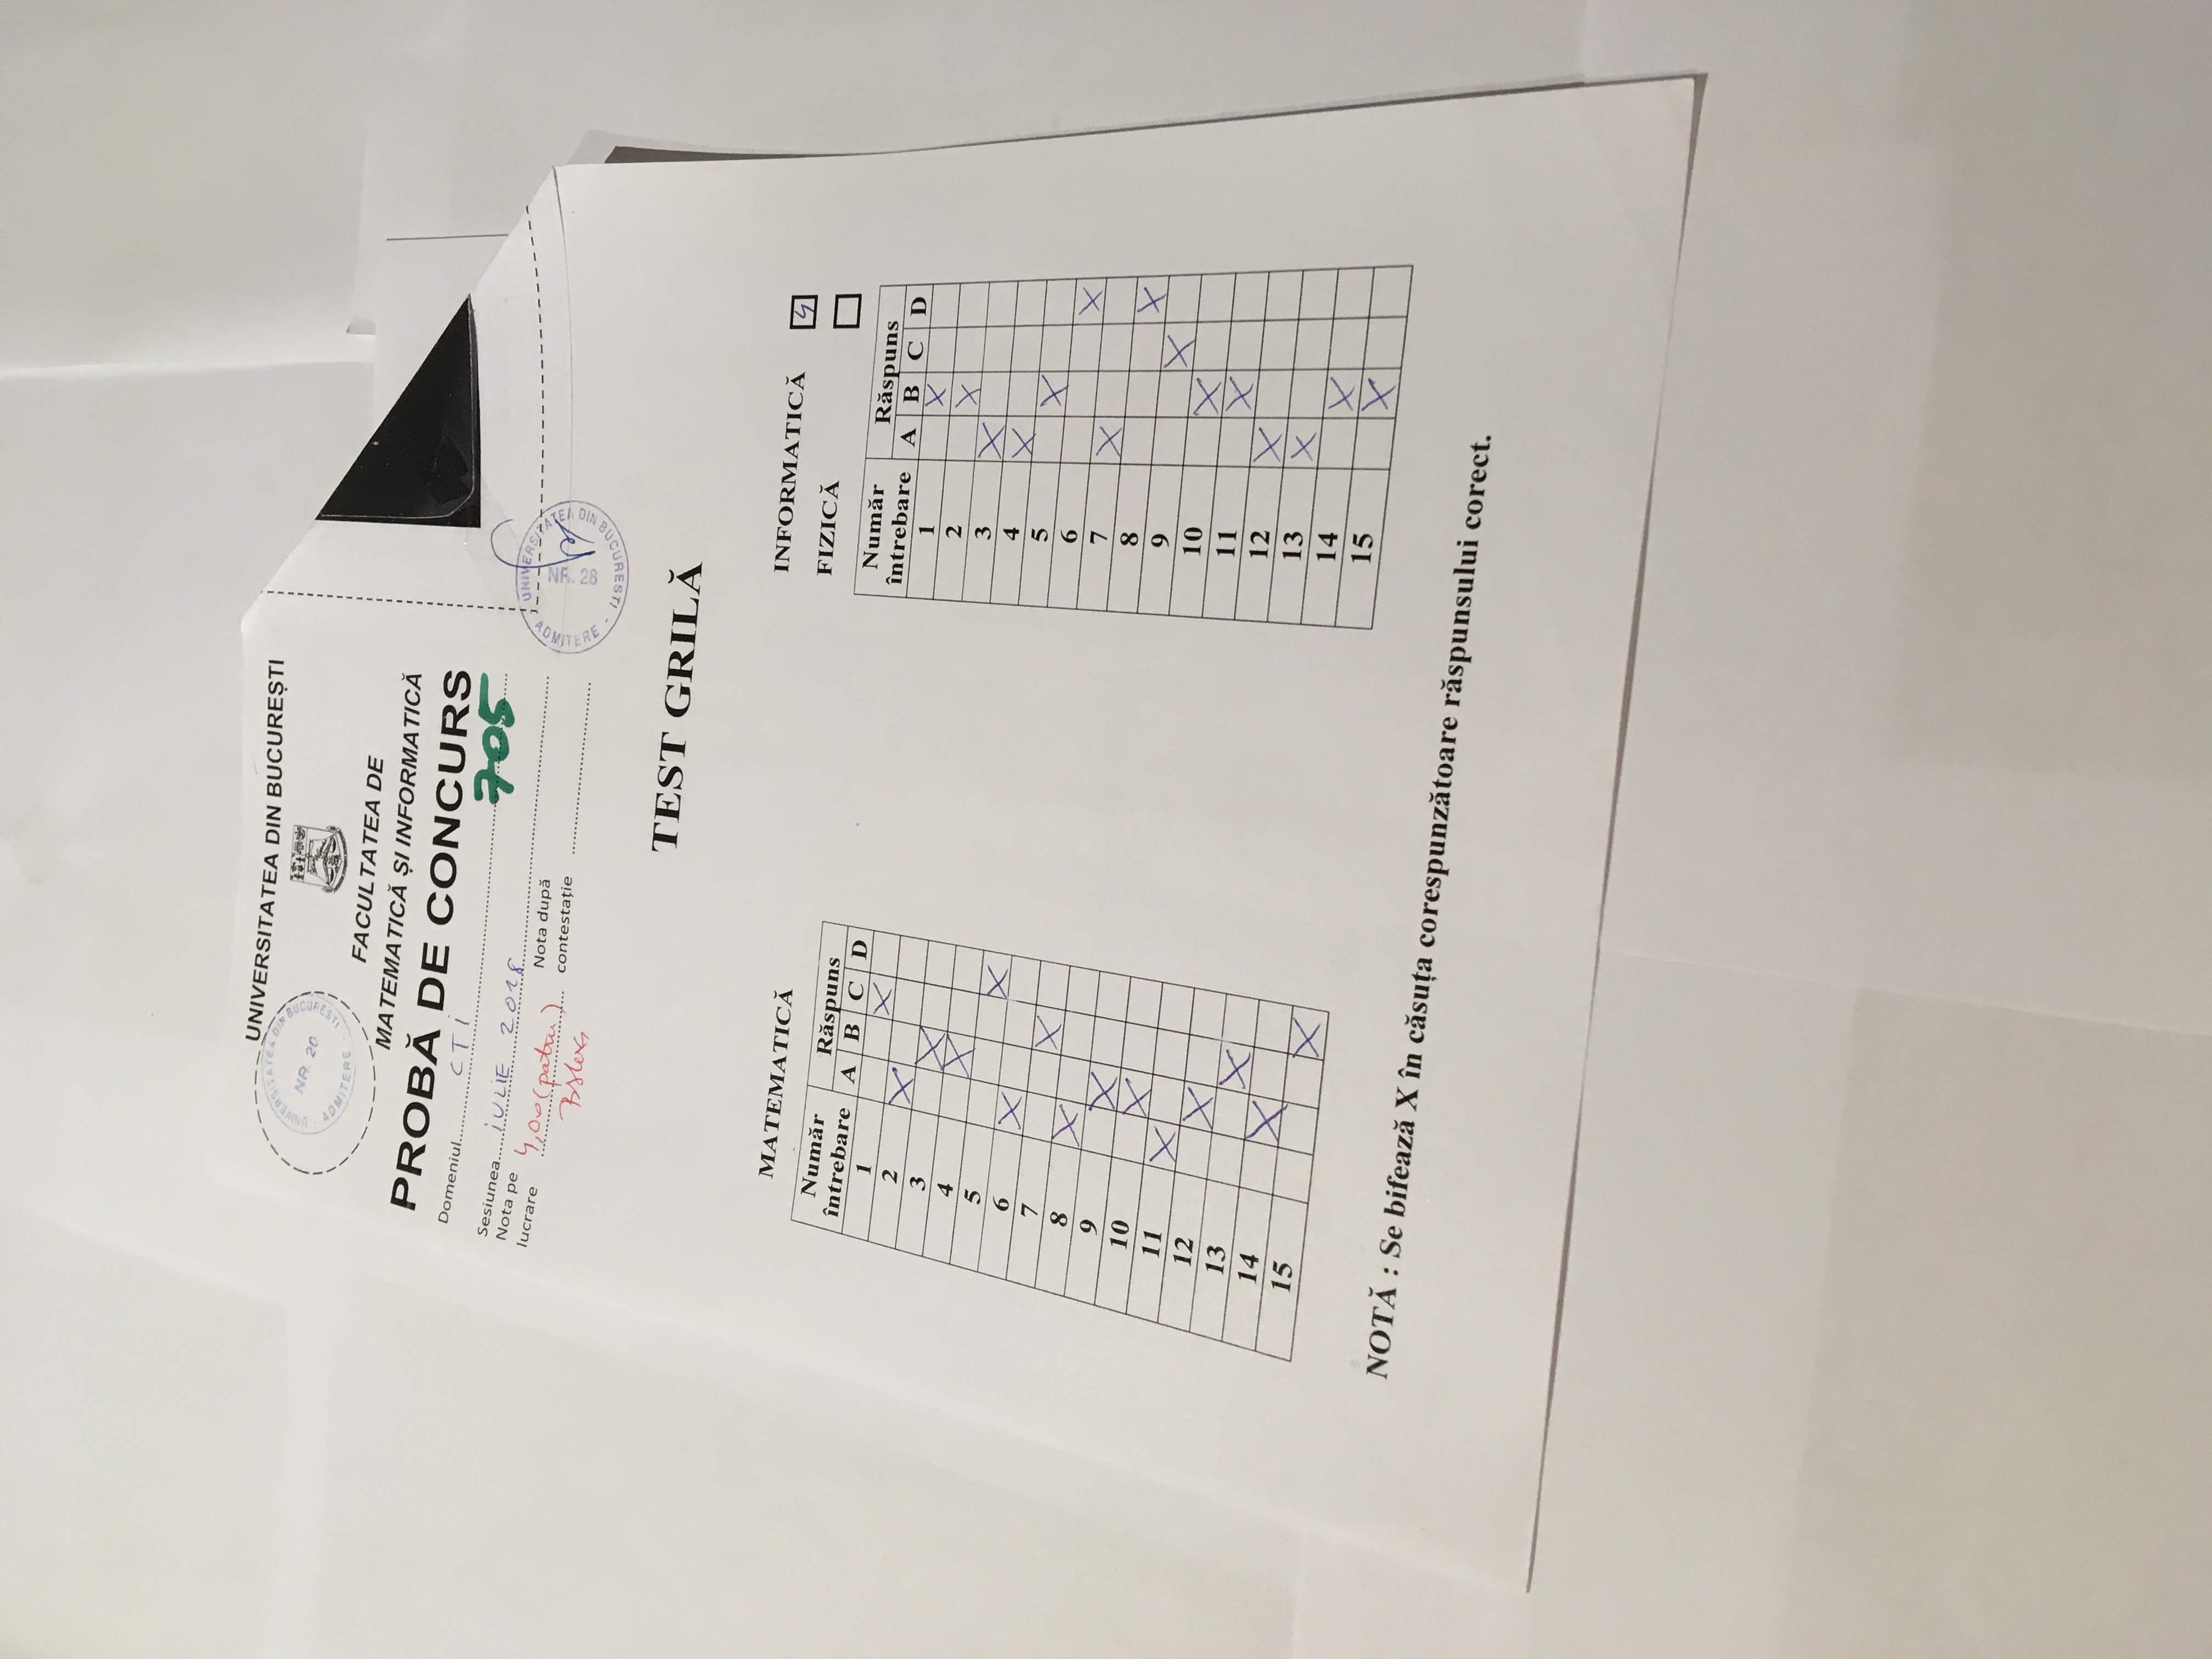 UNIVERSITATEA DIN BUCUREȘTI
UNIVERSITATEA DIN BUCUREȘTI
NR. 20
ADMITERE
FACULTATEA DE
MATEMATICĂ ȘI INFORMATICĂ
PROBĂ DE CONCURS
Domeniul CTI
705
Sesiunea iULIE 2018
Nota pe lucrare 4,00 (patru)
Nota după contestație
UNIVERSITATEA DIN BUCURESTI
NR. 28
ADMITERE
TEST GRILĂ
MATEMATICĂ
Număr întrebare Răspuns
A B C D
1 X
2 X
3 X
4 X
5 X
6 X
7 X
8 X
9 X
10 X
11 X
12 X
13 X
14 X
15 X
INFORMATICĂ
FIZICĂ
Număr întrebare Răspuns
A B C D
1 X
2 X
3 X
4 X
5 X
6 X
7 X
8 X
9 X
10 X
11 X
12 X
13 X
14 X
15 X
NOTĂ : Se bifează X în căsuța corespunzătoare răspunsului corect.